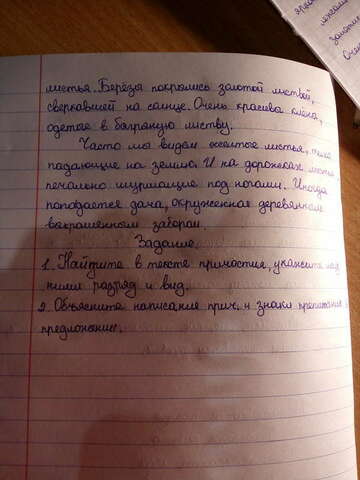 листья. Берёзы покрылись золотой листвой,
сверкавшей на солнце. Очень красивы клёна,
одетые в багряную листву.
Часто мы видим желтые листья,
падающие на землю. И на дорожках
печально шуршащие под ногами. Иногда
попадается дача, окруженная деревянным
выкрашенным забором.
Задание.
1. Найдите в тексте причастия, укажите над
ними разряд и вид.
2. Объясните написание прич. и знаки препинания
предложении.